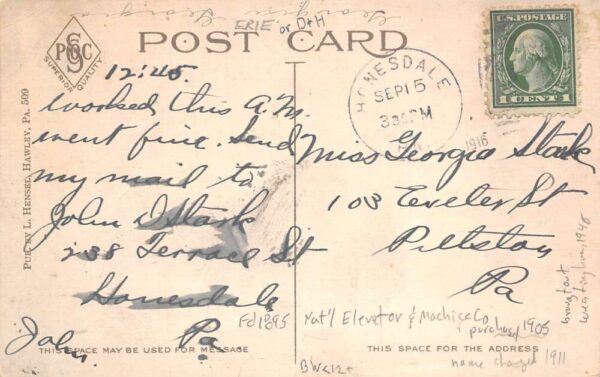 Georgia Georgia
ERIE or D+H
POST CARD
PSC
SUPERIOR QUALITY
U.S. POSTAGE
1 CENT 1
HONESDALE
SEP 15
3 30 PM
PA.
1916
PUB. BY L. HENSEL, HAWLEY, PA. 509
12:45.
worked this A.M.
went fine. Send
my mail to
John D Stark
238 Terrace St
Honesdale
Pa.
John
THIS SPACE MAY BE USED FOR MESSAGE
Miss Georgia Stark
103 Exeter St
Pittston
Pa
Fd 1895
Nat'l Elevator & Machine Co
purchased 1905
name changed 1911
bought out
Westinghouse 1946
THIS SPACE FOR THE ADDRESS